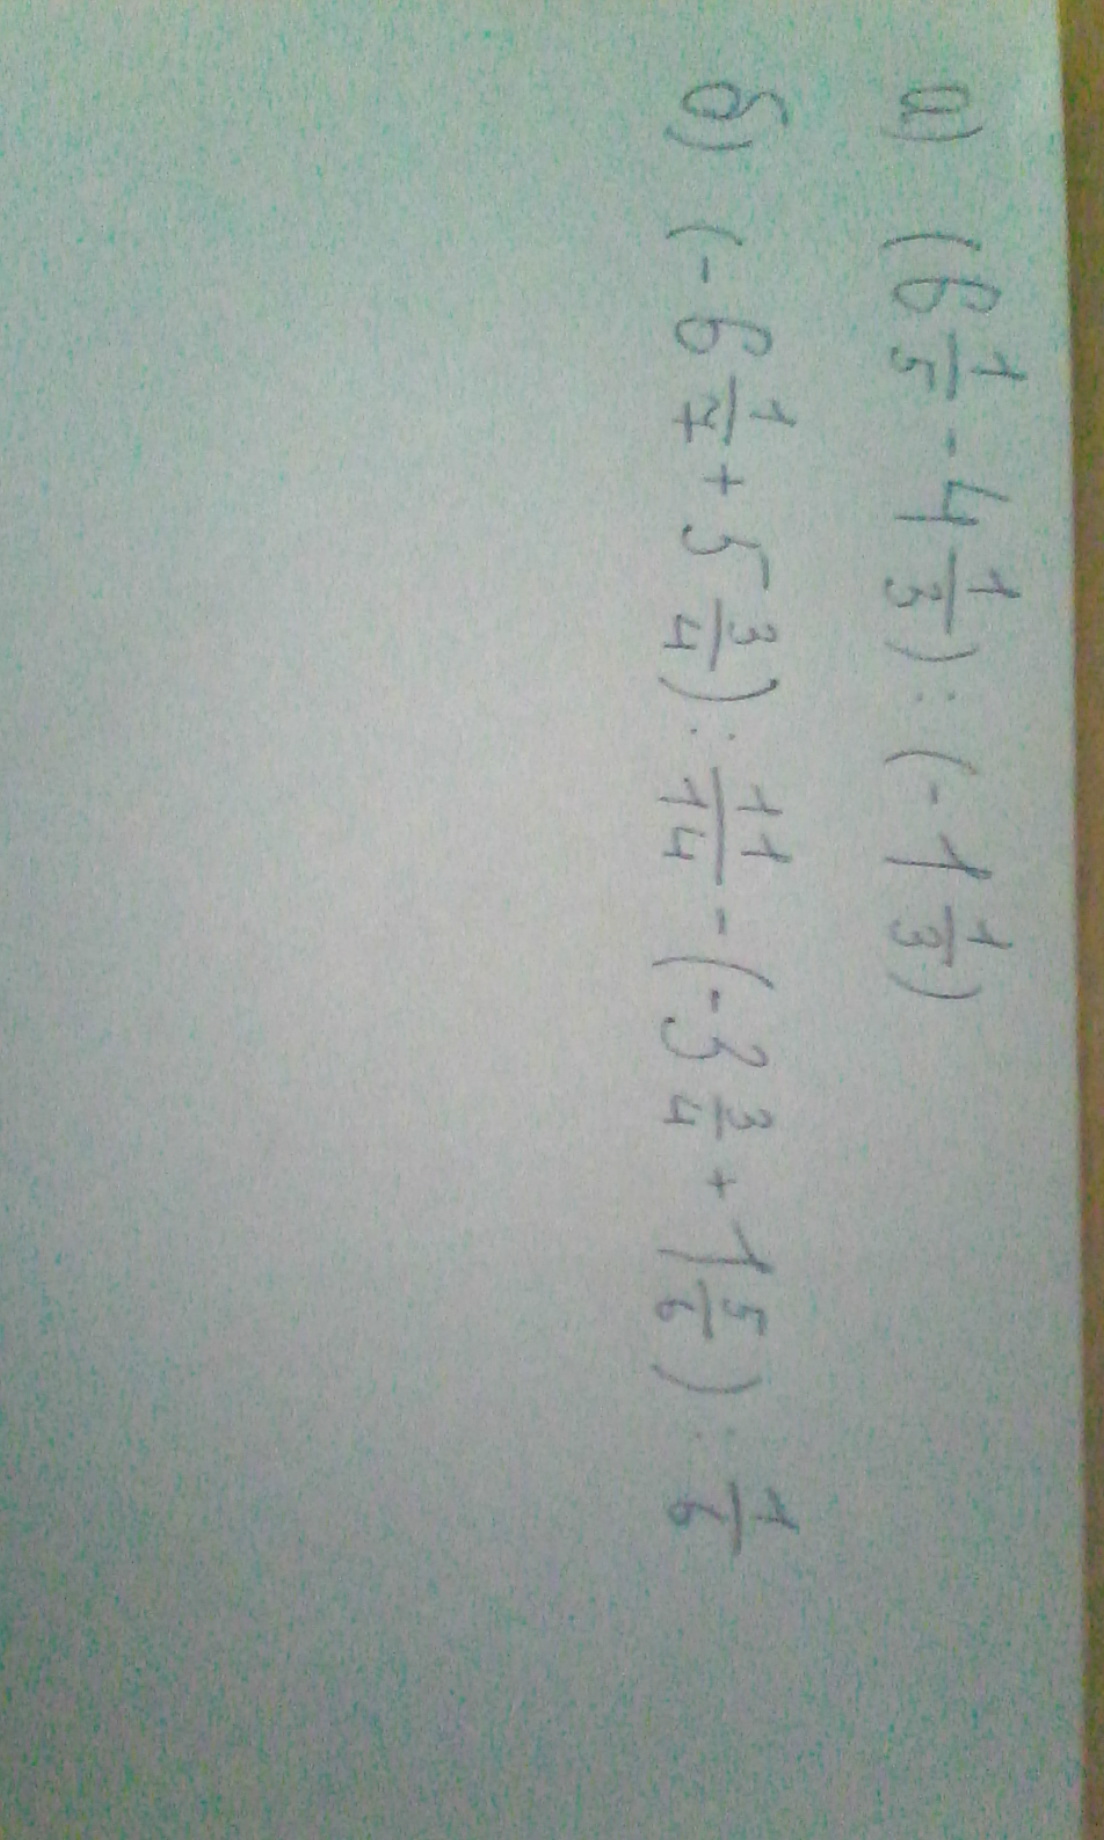 а) (6 1/5 - 4 1/3) : (- 1 1/3)
б) (- 6 1/7 + 5 3/4) : 11/14 - (-3 3/4 + 1 5/6) : 1/6